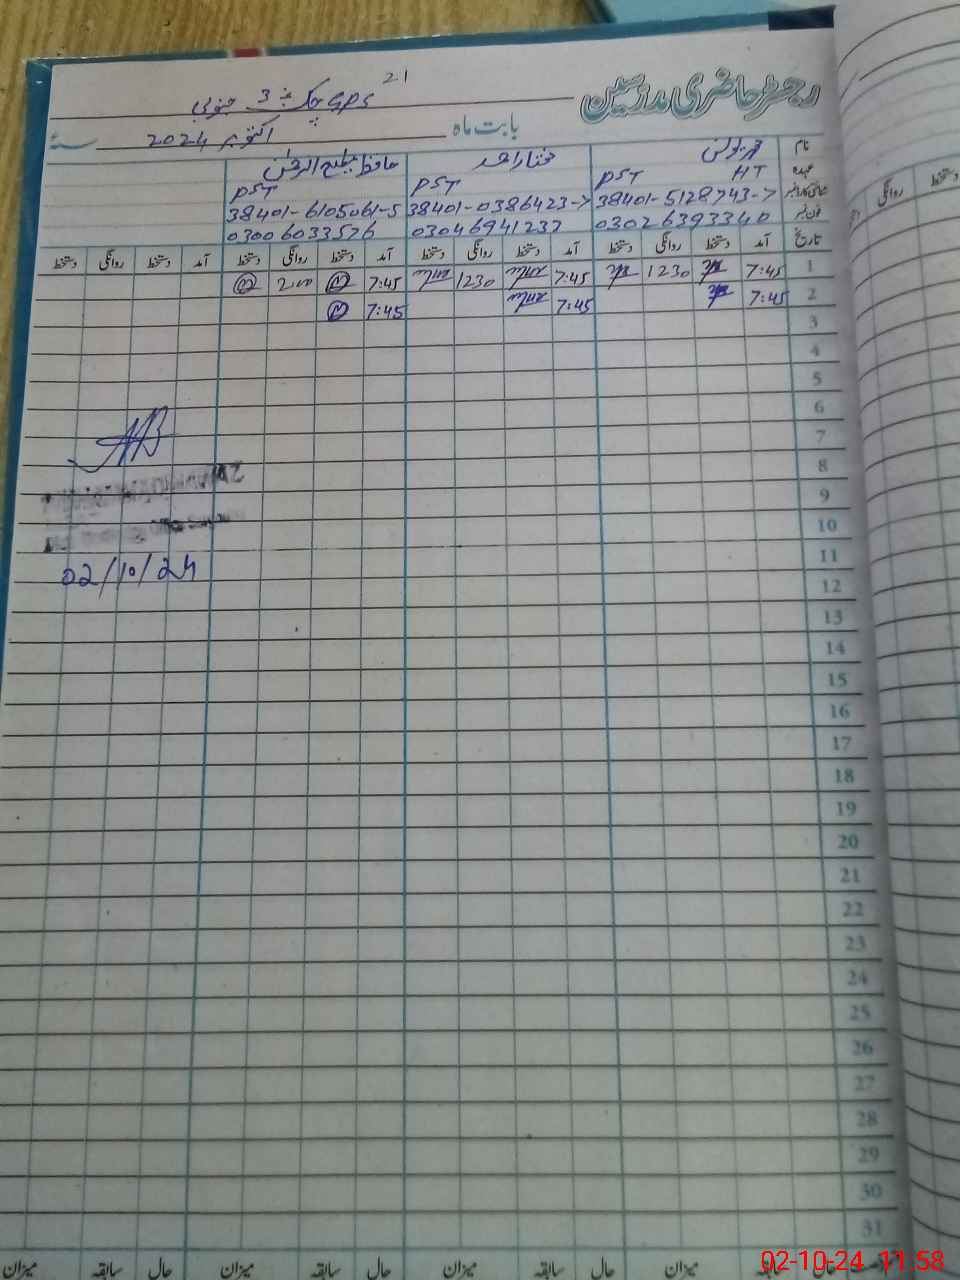 21
رجسٹر حاضری مدرسین
GPS چک نمبر 3 جنوبی
بابت ماہ اکتوبر 2024 سنہ
نام مختار احمد حافظ
عہدہ HT PST PST PST
38401-5128743-7 38401-0386423-7 38401-6105061-5
فون نمبر 03026393340 03046941237 03006033576
تاریخ آمد دستخط روانگی دستخط آمد دستخط روانگی دستخط آمد دستخط روانگی دستخط آمد دستخط روانگی دستخط
1 7:45 1230 7:45 1230 7:45 2:00
2 7:45 7:45 7:45
3
4
5
6
7
8
9
10
11
12
02/10/24
13
14
15
16
17
18
19
20
21
22
23
24
25
26
27
28
29
30
31
حال سابقہ میزان حال سابقہ میزان حال سابقہ میزان حال سابقہ میزان
02-10-24 11:58